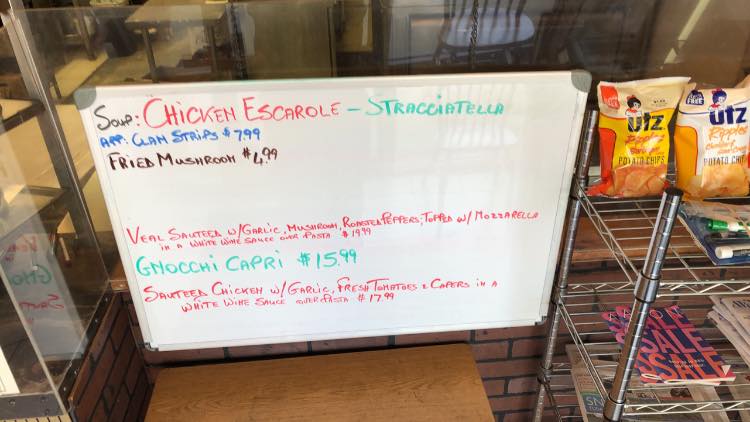 Soup: CHICKEN ESCAROLE - STRACCIATELLA
APP: CLAM STRIPS $7.99
FRIED MUSHROOM $4.99
VEAL SAUTEED W/GARLIC, MUSHROOM, ROASTED PEPPERS, TOPPED W/ MOZZARELLA
IN A WHITE WINE SAUCE OVER PASTA $19.99
GNOCCHI CAPRI $15.99
SAUTEED CHICKEN W/GARLIC, FRESH TOMATOES & CAPERS IN A
WHITE WINE SAUCE OVER PASTA $17.99
UTZ
POTATO CHIPS
FREE
UTZ
Ripples
POTATO CHIPS
SALE
SALE
SALE